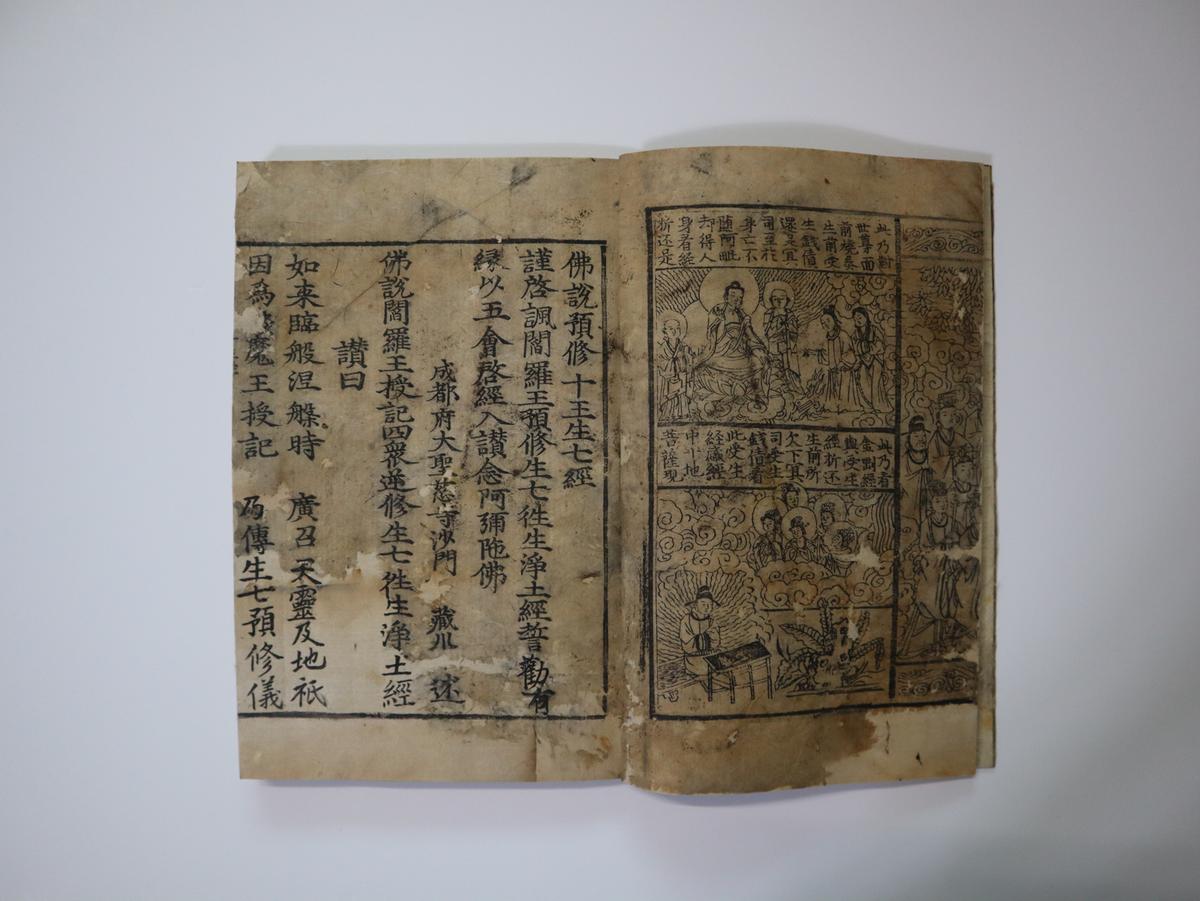 此乃對
世尊面
前燒奌
生前受
生錢債
還足冥
司至於
身亡不
隨阿毗
却得人
身看經
折还是
此乃看
金剛經
與受生
經折还
生前所
欠下冥
司受生
錢債看
此受生
経藏經
中小地
菩薩現
佛說預修十王生七經
謹啓諷閻羅王預修生七徃生淨土經誓勸有
緣以五會啓經入讚念阿彌陁佛
成都府大聖慈寺沙門 藏川 述
佛說閻羅王授記四衆逆修生七徃生淨土經
讃曰
如來臨般涅槃時 廣召天靈及地祇
因為魔王授記 乃傳生七預修儀